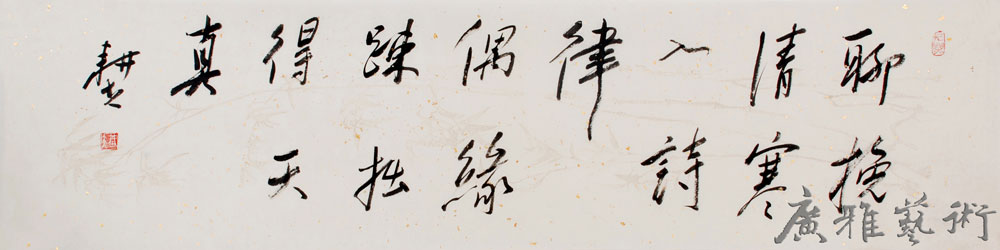 聊挽
清寒
入詩
律
偶緣
疎拙
得天
真
廣雅藝術